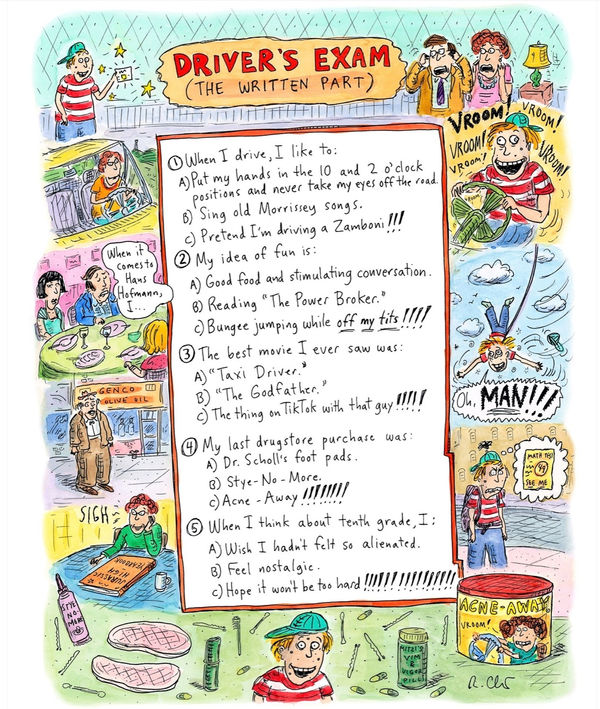 DRIVER'S EXAM
(THE WRITTEN PART)
VROOM!
VROOM!
VROOM!
VROOM!
VROOM!
VROOM!
① When I drive, I like to:
A) Put my hands in the 10 and 2 o'clock
positions and never take my eyes off the road.
B) Sing old Morrissey songs.
C) Pretend I'm driving a Zamboni!!!
② My idea of fun is:
A) Good food and stimulating conversation.
B) Reading "The Power Broker."
C) Bungee jumping while off my tits!!!!
③ The best movie I ever saw was:
A) "Taxi Driver."
B) "The Godfather."
C) The thing on TikTok with that guy!!!!!
④ My last drugstore purchase was:
A) Dr. Scholl's foot pads.
B) Stye-No-More.
C) Acne-Away!!!!!!!!
⑤ When I think about tenth grade, I:
A) Wish I hadn't felt so alienated.
B) Feel nostalgic.
C) Hope it won't be too hard!!!!!!!!!!!!!!!
When it
comes to
Hans
Hofmann,
I...
Oh, MAN!!!
GENCO
OLIVE OIL
MATH TEST
SEE ME
SIGH
JURASSIC
HIGH
YEARBOOK
STYE
NO
MORE
ACNE-AWAY
VROOM!
VIM
&
VIGOR
PILLS
R. Chast